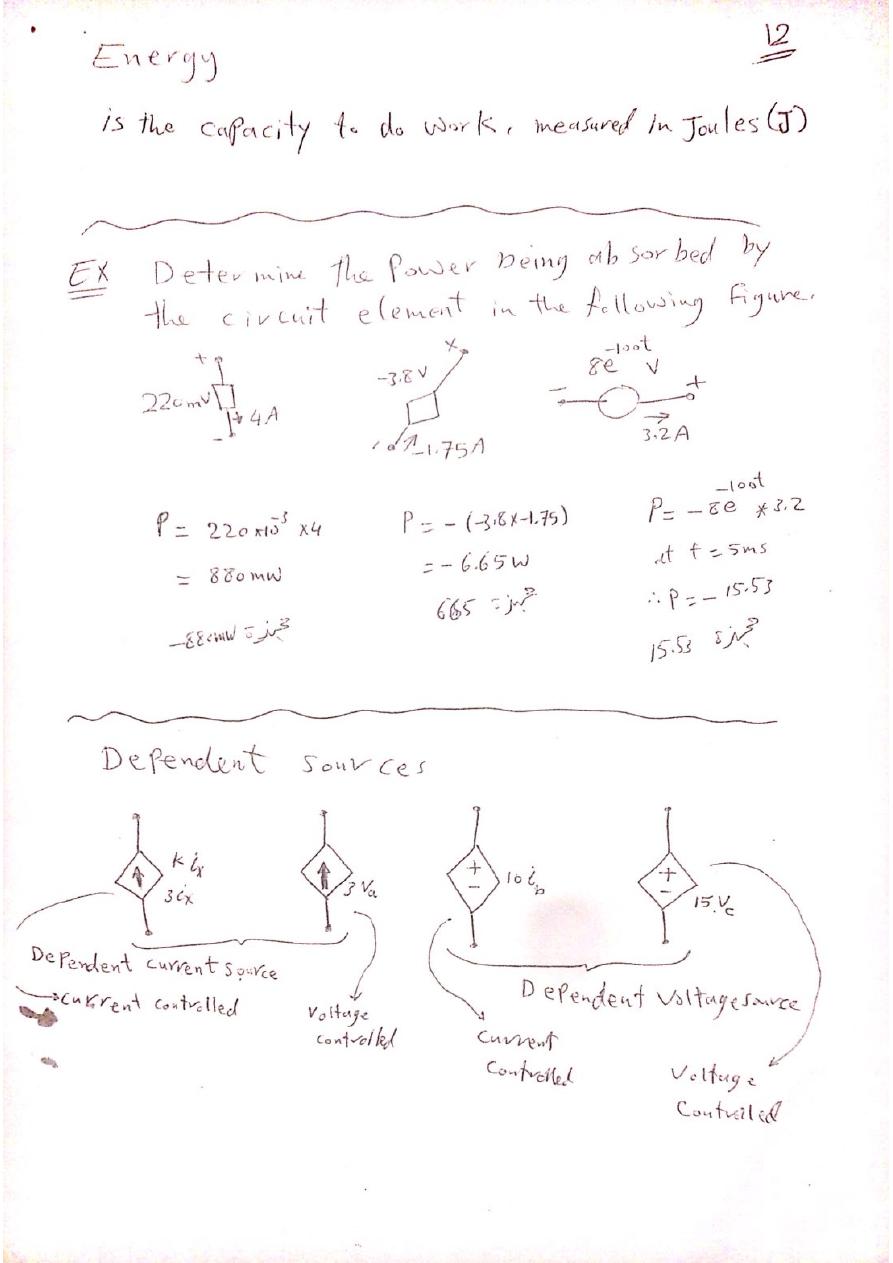 12
Energy
is the capacity to do work, measured in Joules (J)
EX Determine the Power being absorbed by
the circuit element in the following figure.
+
220mV
4A
-
-3.8V
-1.75A
8e^-100t V
-
+
3.2A
P = 220x10^-3 x4
= 880mW
-880mW مجهزة
P = - (-3.8x-1.75)
= - 6.65W
665 مجهزة
P = - 8e^-100t * 3.2
at t = 5ms
∴ P = - 15.53
15.53 مجهزة
Dependent Sources
K ix
3ix
3Va
+
-
10ib
+
-
15Vc
Dependent current source
current controlled
Voltage
controlled
Dependent Voltage source
Current
Controlled
Voltage
Controlled